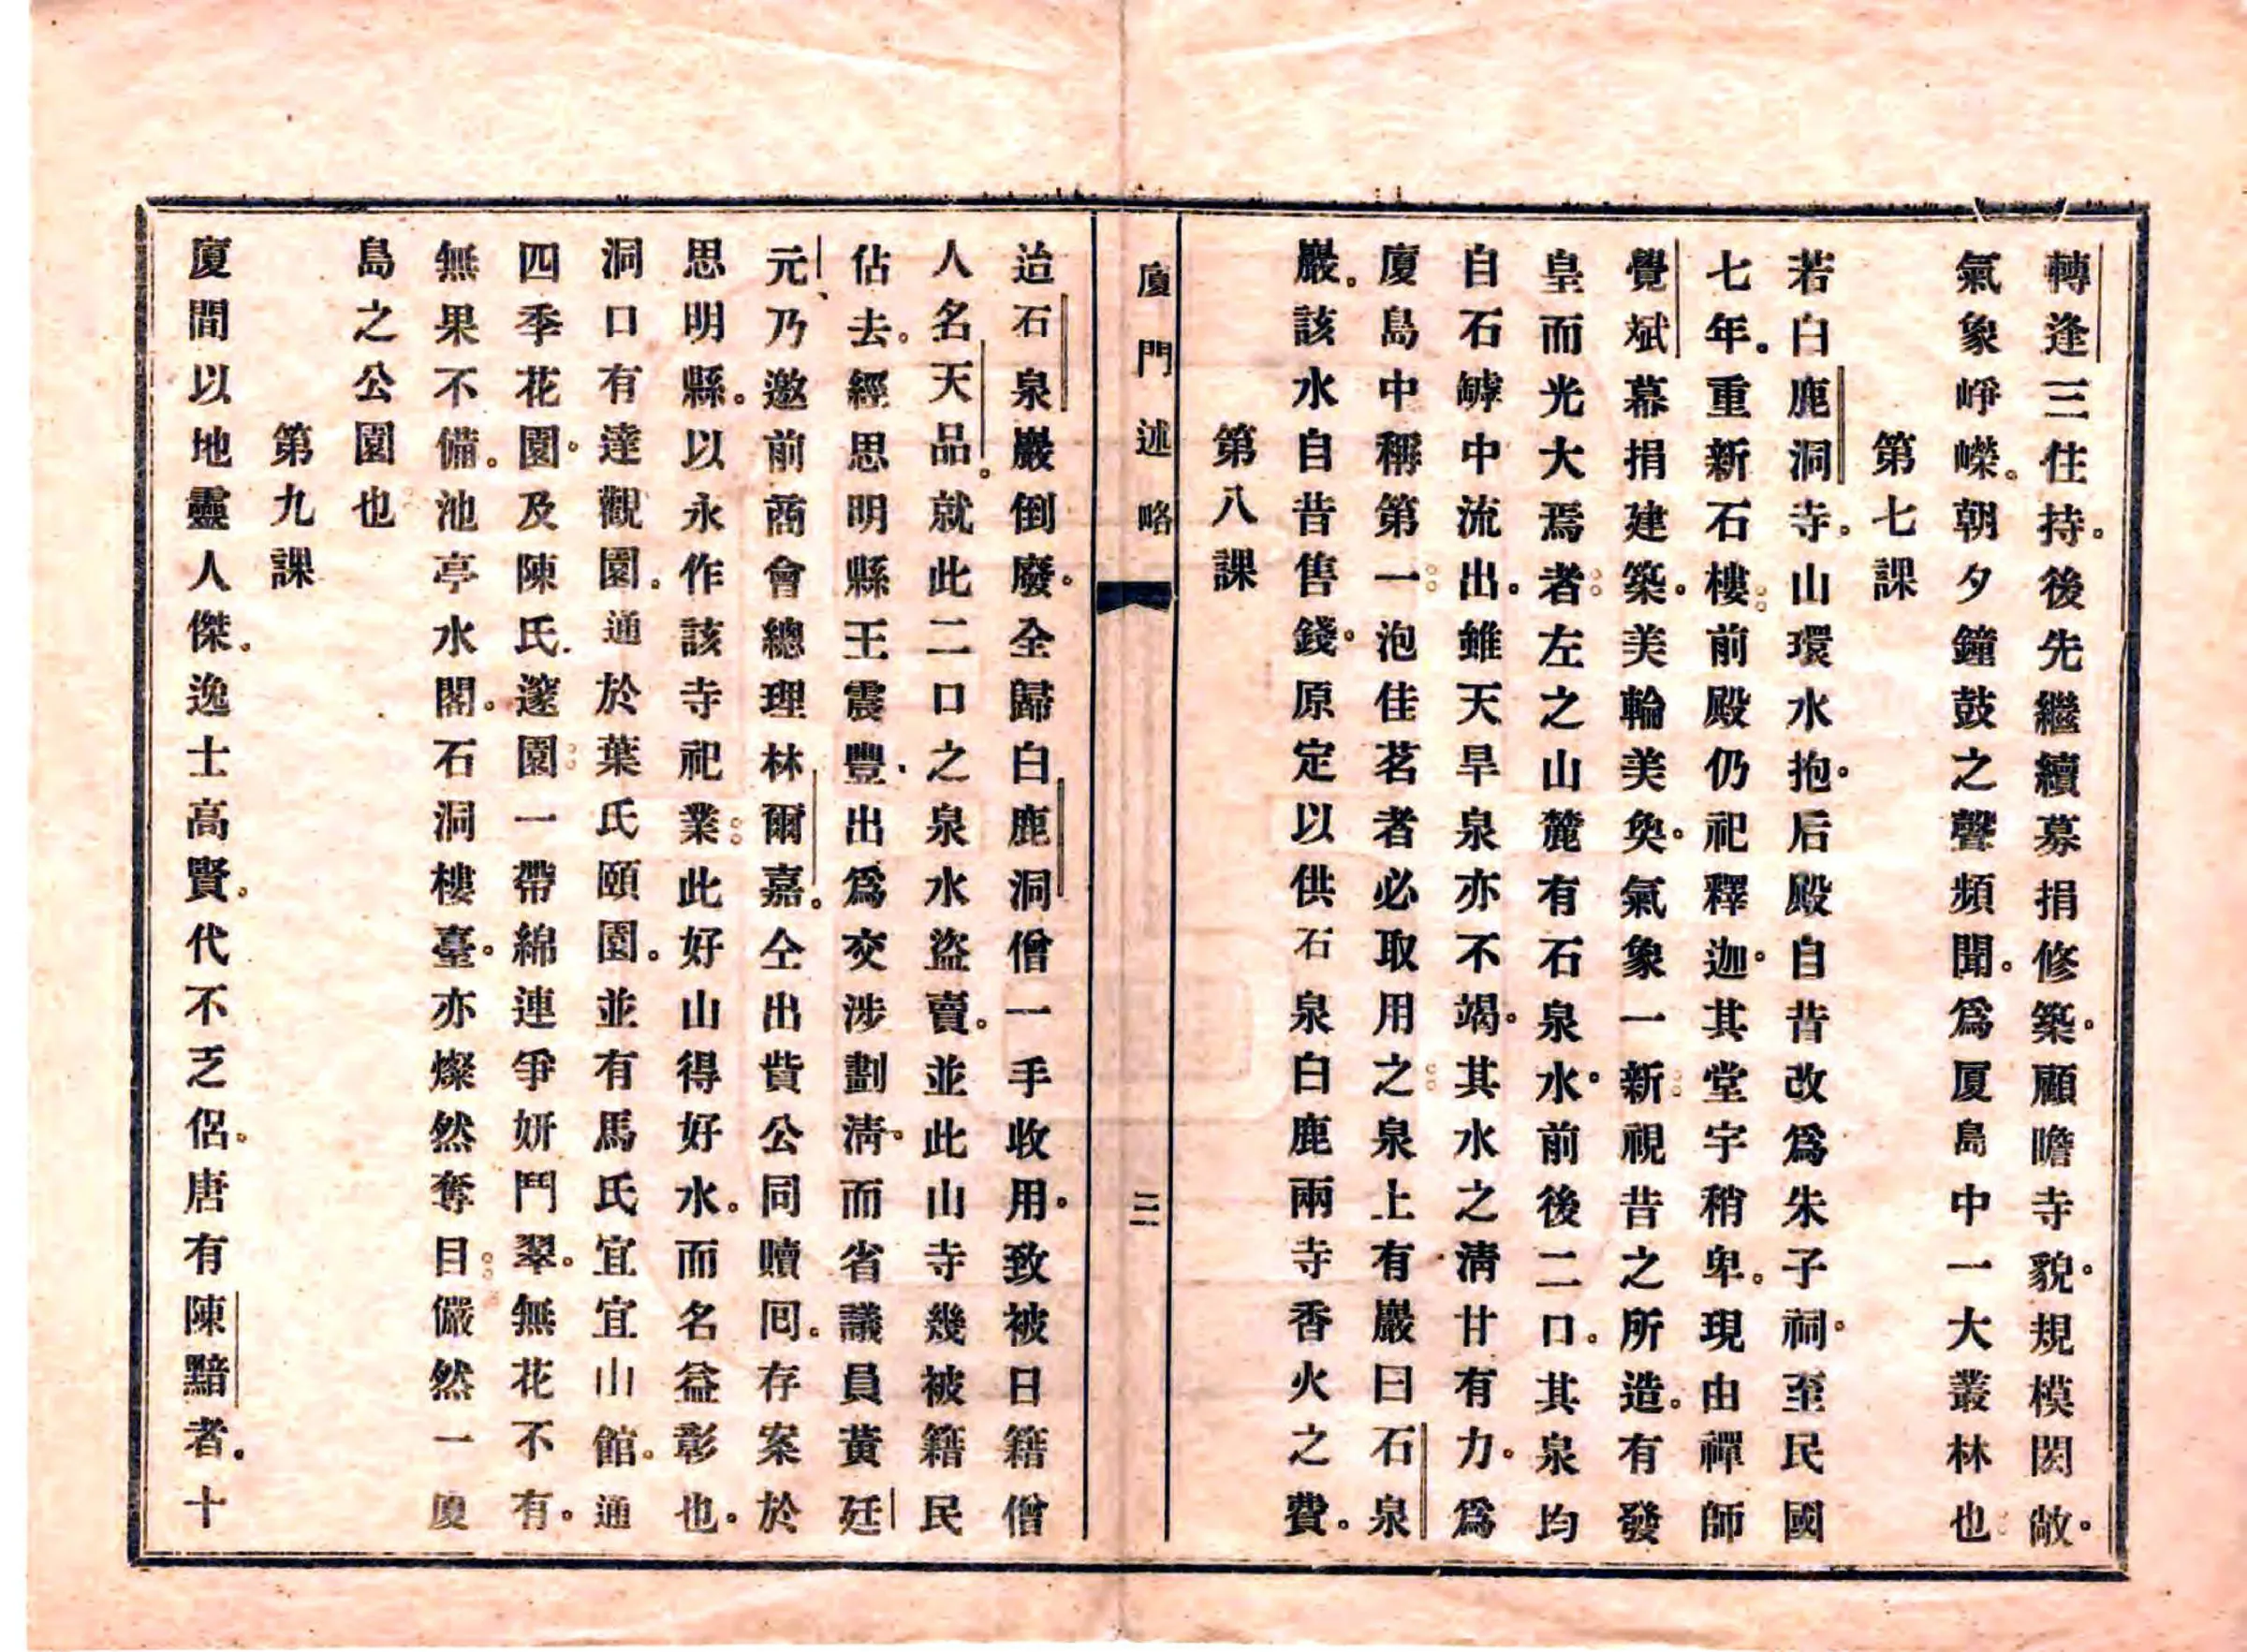 轉逢三住持。後先繼續募捐修築。顧瞻寺貌。規模閎敞。
氣象崢嶸。朝夕鐘鼓之聲頻聞。爲厦島中一大叢林也
第七課
若白鹿洞寺。山環水抱。后殿自昔改爲朱子祠。至民國
七年。重新石樓。前殿仍祀釋迦。其堂宇稍卑。現由禪師
覺斌幕捐建築。美輪美奐。氣象一新。視昔之所造。有發
皇而光大焉者。左之山麓有石泉水。前後二口。其泉均
自石罅中流出。雖天旱泉亦不竭。其水之淸甘有力。爲
厦島中稱第一。泡佳茗者必取用之。泉上有巖曰石泉
巖。該水自昔售錢。原定以供石泉白鹿兩寺香火之費。
第八課
廈門述略
三
迨石泉巖倒廢。全歸白鹿洞僧一手收用。致被日籍僧
人名天品。就此二口之泉水盜賣。並此山寺幾被籍民
佔去。經思明縣王震豐。出爲交涉劃淸。而省議員黃廷
元、乃邀前商會總理林爾嘉。仝出貲公同贖囘。存案於
思明縣。以永作該寺祀業。此好山得好水。而名益彰也。
洞口有達觀園。通於葉氏頤園。並有馬氏宜宜山館。通
四季花園。及陳氏.邃園。一帶綿連爭妍鬥翠。無花不有。
無果不備。池亭水閣。石洞樓臺。亦燦然奪目。儼然一廈
島之公園也
第九課
廈間以地靈人傑。逸士高賢。代不乏侶。唐有陳黯者。十